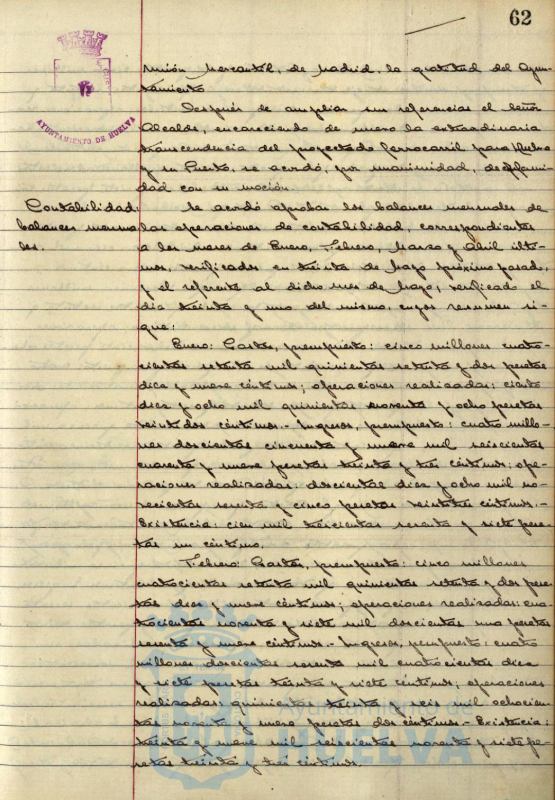 62
AYUNTAMIENTO DE HUELVA
Unión Mercantil, de Madrid, la gratitud del Ayun-
tamiento
Después de ampliar sus referencias el Señor
Alcalde, encareciendo de nuevo la extraordinaria
transcendencia del proyectado ferrocarril para Huelva
y su Puerto, se acordó, por unanimidad, de conformi-
dad con su moción.
Contabilidad:
balances mensua
les.
Se acordó aprobar los balances mensuales de
las operaciones de contabilidad, correspondientes
a los meses de Enero, Febrero, Marzo y Abril últi-
mos, verificados en treinta de Mayo próximo pasado,
y el referente al dicho mes de Mayo, verificado el
día treinta y uno del mismo, cuyos resumen si-
gue:
Enero: Gastos, presupuesto: cinco millones cuatro-
cientas setenta mil quinientas setenta y dos pesetas
diez y nueve céntimos; operaciones realizadas: ciento
diez y ocho mil quinientas noventa y ocho pesetas
veintidos céntimos.- Ingresos, presupuesto: cuatro millo-
nes doscientas cincuenta y nueve mil seiscientas
cuarenta y nueve pesetas treinta y tres céntimos; ope-
raciones realizadas: doscientas diez y ocho mil no-
vecientas sesenta y cinco pesetas veintitres céntimos.-
Existencia: cien mil trescientas sesenta y siete pese-
tas un céntimo.
Febrero: Gastos, presupuesto: cinco millones
cuatrocientas setenta mil quinientas setenta y dos pese-
tas diez y nueve céntimos; operaciones realizadas: cua-
trocientas noventa y siete mil doscientas una pesetas
sesenta y nueve céntimos.- Ingresos, presupuesto: cuatro
millones doscientas sesenta mil cuatrocientas diez
y siete pesetas treinta y siete céntimos; operaciones
realizadas: quinientas treinta y seis mil ochocien-
tas noventa y nueve pesetas dos céntimos.- Existencia:
treinta y nueve mil seiscientas noventa y siete pe-
setas treinta y tres céntimos.
Ayuntamiento de
HUELVA